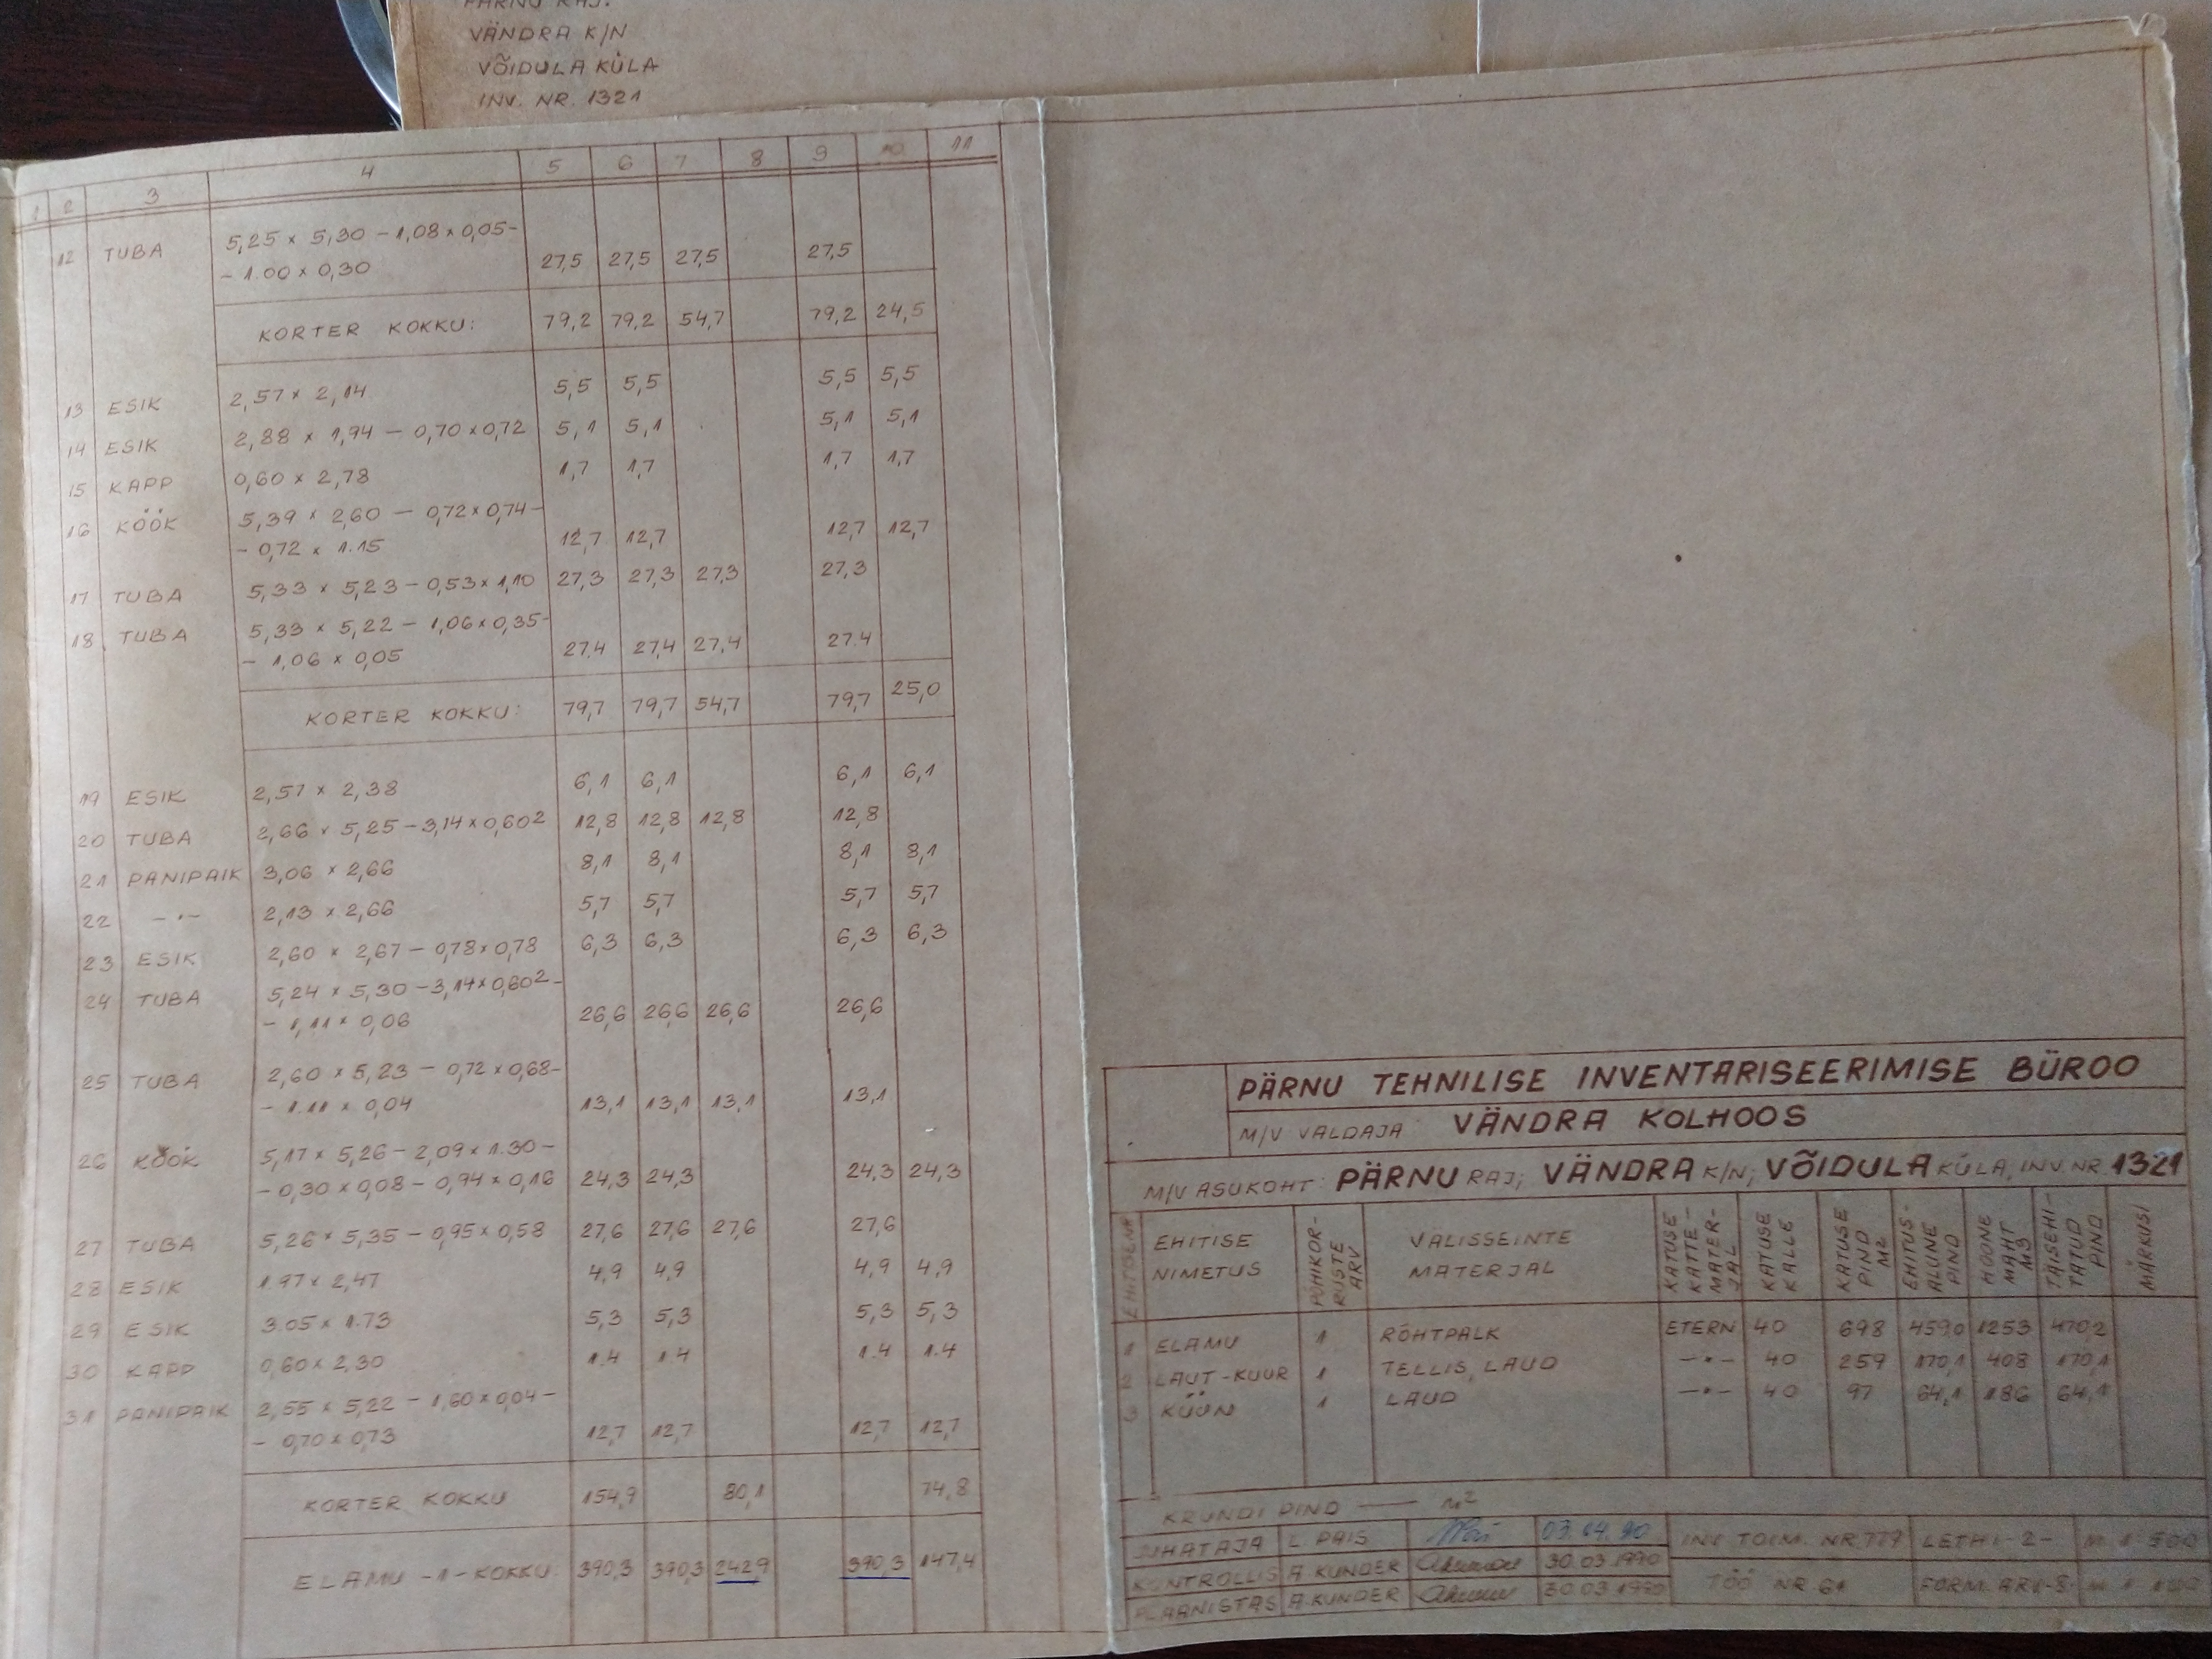 PÄRNU RAJ.
VÄNDRA K/N
VÕIDULA KÜLA
INV. NR. 1321
1 2 3 4 5 6 7 8 9 10 11
12 TUBA 5,25 × 5,30 - 1,08 × 0,05 -
- 1.00 × 0,30 27,5 27,5 27,5 27,5
KORTER KOKKU: 79,2 79,2 54,7 79,2 24,5
13 ESIK 2,57 × 2,14 5,5 5,5 5,5 5,5
14 ESIK 2,88 × 1,94 - 0,70 × 0,72 5,1 5,1 5,1 5,1
15 KAPP 0,60 × 2,78 1,7 1,7 1,7 1,7
16 KÖÖK 5,39 × 2,60 - 0,72 × 0,74 -
- 0,72 × 1.15 12,7 12,7 12,7 12,7
17 TUBA 5,33 × 5,23 - 0,53 × 1,10 27,3 27,3 27,3 27,3
18 TUBA 5,33 × 5,22 - 1,06 × 0,35 -
- 1,06 × 0,05 27.4 27,4 27,4 27.4
KORTER KOKKU: 79,7 79,7 54,7 79,7 25,0
19 ESIK 2,57 × 2,38 6,1 6,1 6,1 6,1
20 TUBA 2,66 × 5,25 - 3,14 × 0,60² 12,8 12,8 12,8 12,8
21 PANIPAIK 3,06 × 2,66 8,1 8,1 8,1 8,1
22 -"- 2,13 × 2,66 5,7 5,7 5,7 5,7
23 ESIK 2,60 × 2,67 - 0,78 × 0,78 6,3 6,3 6,3 6,3
24 TUBA 5,24 × 5,30 - 3,14 × 0,60² -
- 1,11 × 0,06 26,6 26,6 26,6 26,6
25 TUBA 2,60 × 5,23 - 0,72 × 0,68 -
- 1.11 × 0,04 13,1 13,1 13,1 13,1
26 KÖÖK 5,17 × 5,26 - 2,09 × 1.30 -
- 0,30 × 0,08 - 0,94 × 0,16 24,3 24,3 24,3 24,3
27 TUBA 5,26 × 5,35 - 0,95 × 0,58 27,6 27,6 27,6 27,6
28 ESIK 1.97 × 2,47 4,9 4,9 4,9 4,9
29 ESIK 3.05 × 1.73 5,3 5,3 5,3 5,3
30 KAPP 0,60 × 2,30 1.4 1.4 1.4 1.4
31 PANIPAIK 2,55 × 5,22 - 1,60 × 0,04 -
- 0,70 × 0,73 12,7 12,7 12,7 12,7
KORTER KOKKU 154,9 80,1 74,8
ELAMU -1- KOKKU: 390,3 390,3 242,9 390,3 147,4
PÄRNU TEHNILISE INVENTARISEERIMISE BÜROO
M/V VALDAJA: VÄNDRA KOLHOOS
M/V ASUKOHT: PÄRNU RAJ; VÄNDRA K/N; VÕIDULA KÜLA, INV. NR. 1321
EHITISE NIMETUS
PÕHIKORRUSTE ARV
VÄLISSEINTE MATERJAL
KATUSE KATTE-MATER-JAL
KATUSE KALLE
KATUSE PIND M2
EHITUS-ALUNE PIND
HOONE MAHT M3
TÄISEHI-TATUD PIND
MÄRKUSI
1 ELAMU 1 RÕHTPALK ETERN 40 698 459,0 1253 470,2
2 LAUT-KUUR 1 TELLIS, LAUD -"- 40 259 170,1 408 170,1
3 KÜÜN 1 LAUD -"- 40 97 64,1 186 64,1
KRUNDI PIND —— m²
JUHATAJA L PAIS 03.04.90 INV TOIM. NR. 777 LEHT -2- M 1:500
KONTROLLIS A. KUNDER 30.03.1990
TÖÖ NR 61
PLAANISTAS A. KUNDER 30.03.1990